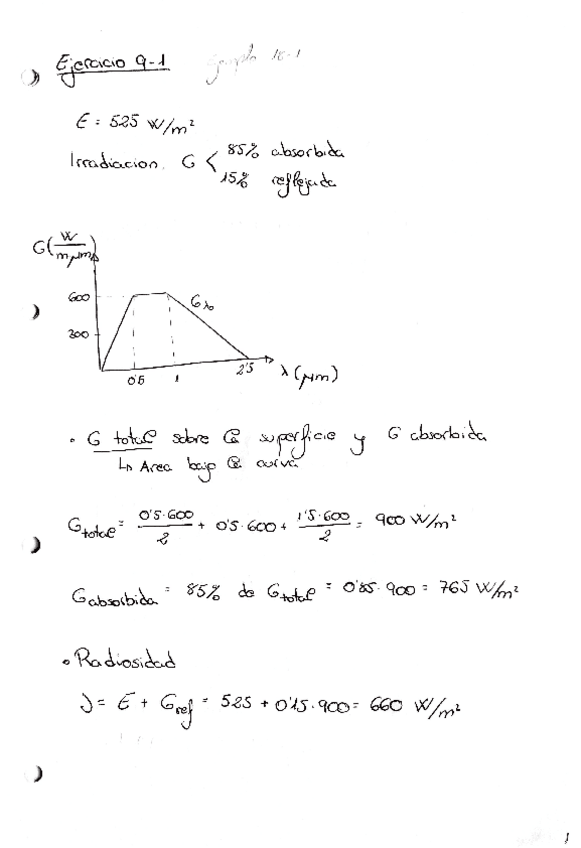 Ejercicio 9-1 Ejemplo 18-1
E = 525 W/m²
Irradiacion. G < 85% absorbida
15% reflejada
G(W/m²μm)
600
Gλ
300
0'5 1 2'5 λ(μm)
• G total sobre la superficie y G absorbida
↳ Area bajo la curva
Gtotal = 0'5·600/2 + 0'5·600 + 1'5·600/2 = 900 W/m²
Gabsorbida = 85% de Gtotal = 0'85·900 = 765 W/m²
• Radiosidad
J = E + Gref = 525 + 0'15·900 = 660 W/m²
1